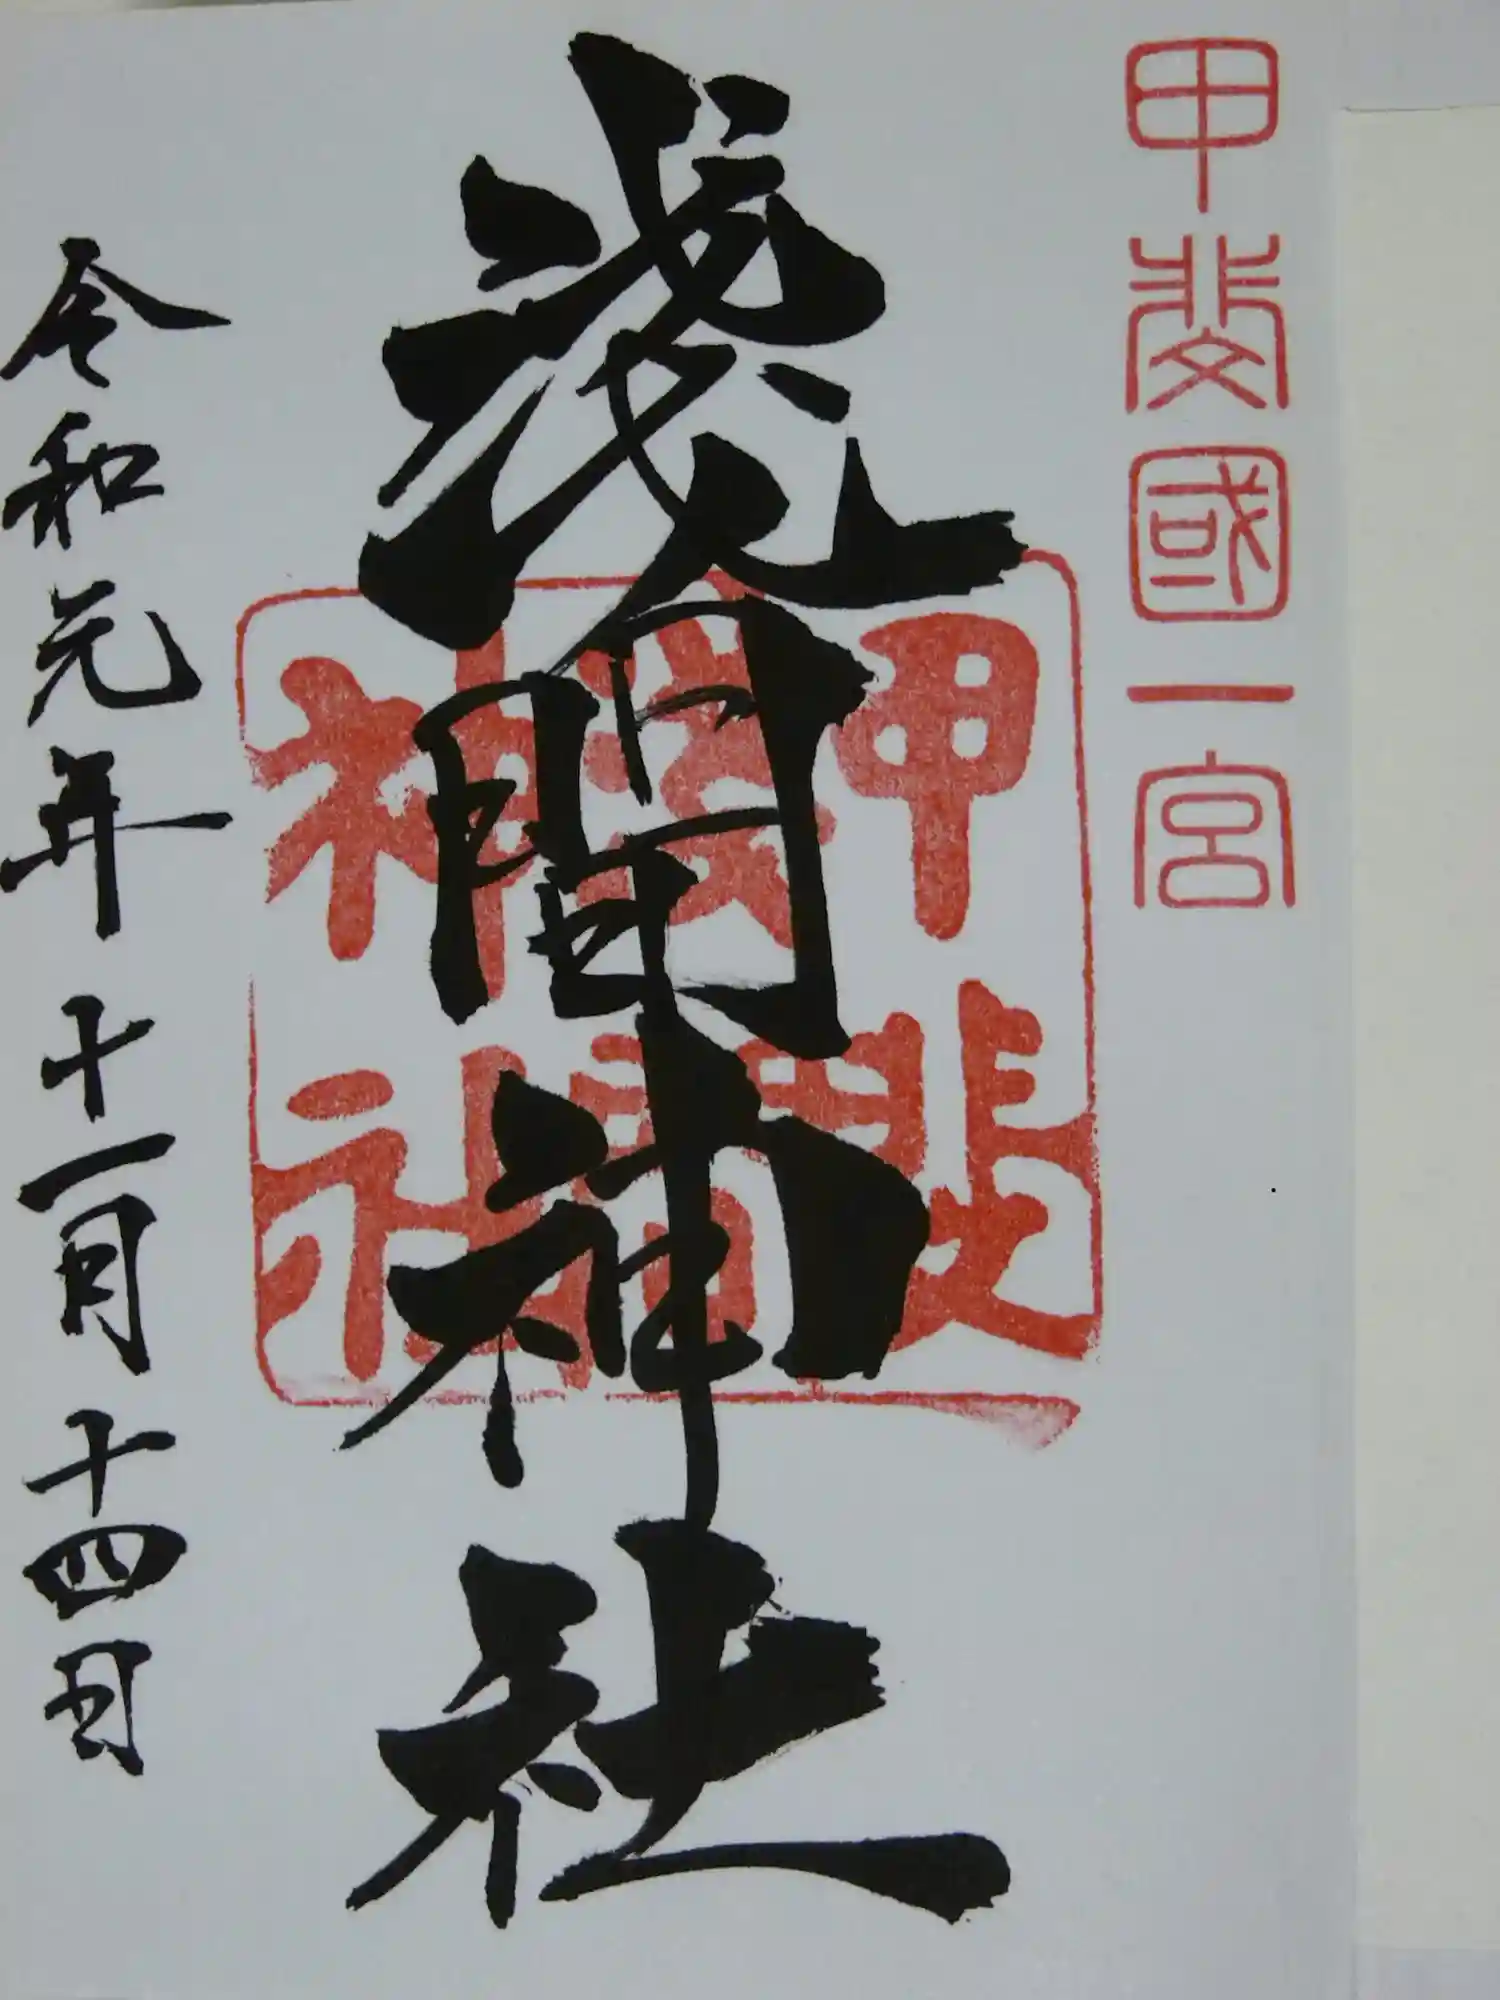 甲斐國一宮
淺間神社
甲斐
淺間
神社
令和元年十一月十四日